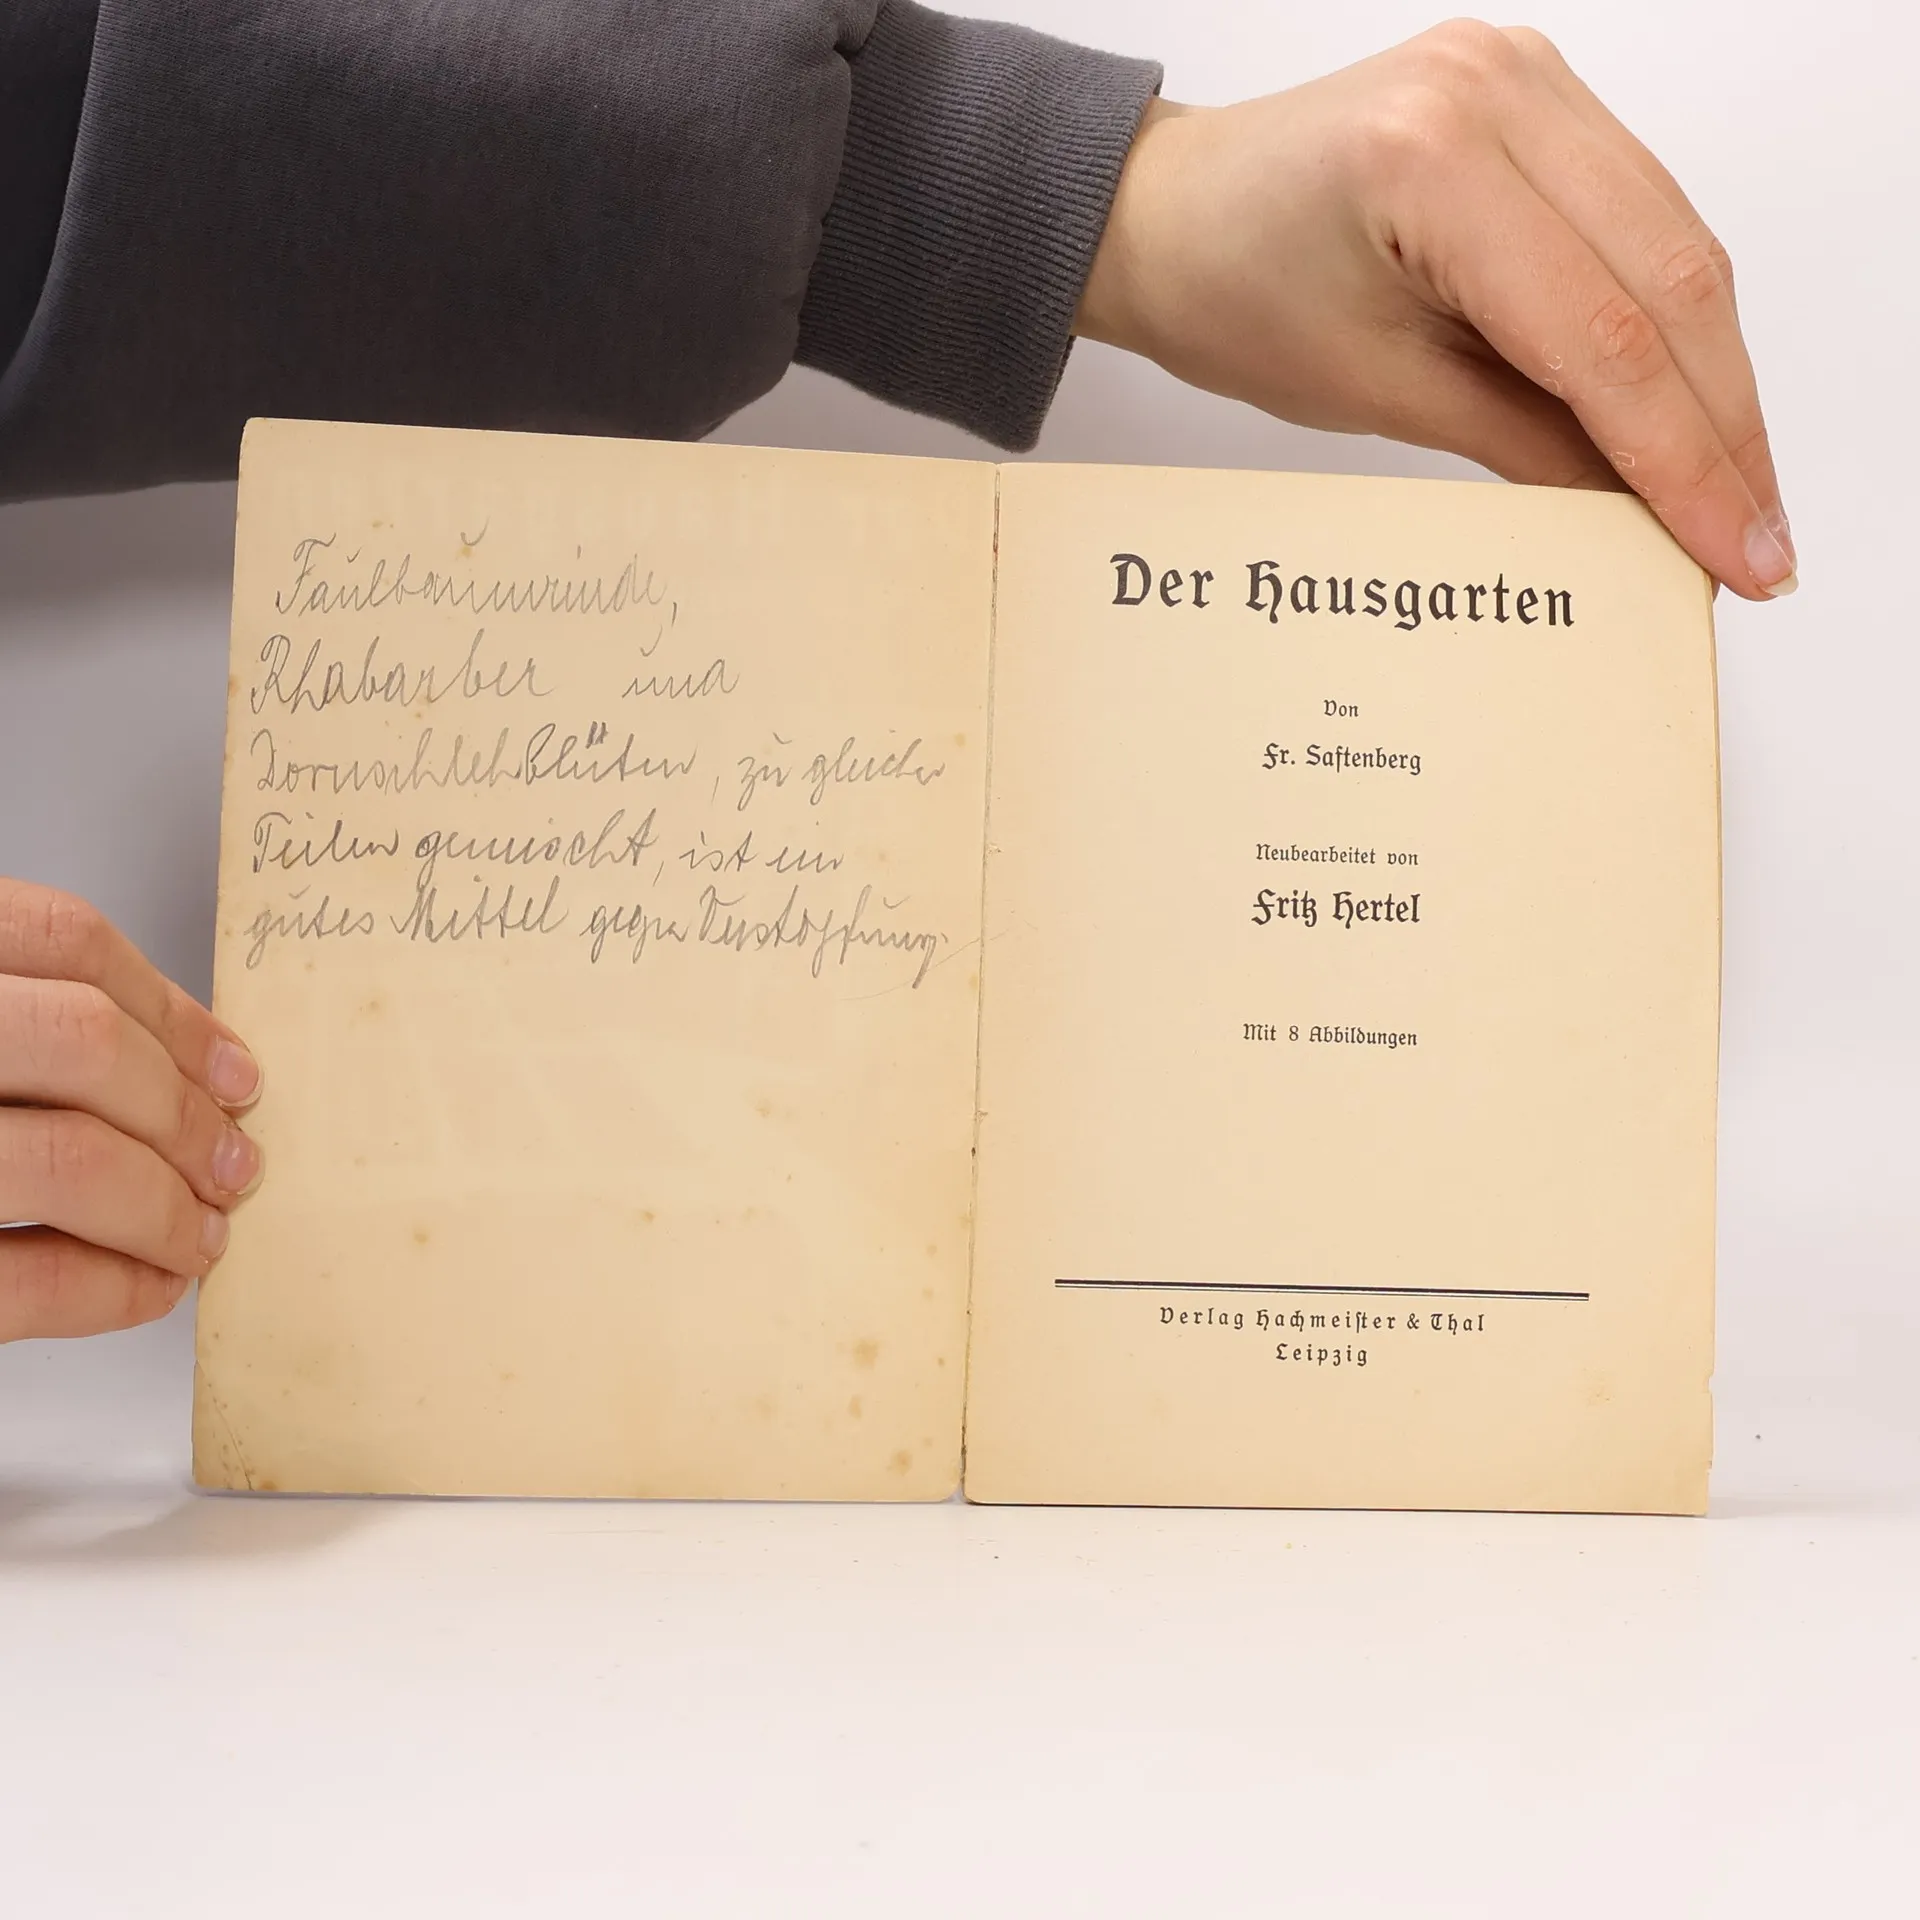 Faulbaumrinde,
Rhabarber und
Dornschlehblüten, zu gleichen
Teilen gemischt, ist ein
gutes Mittel gegen Verstopfung.
Der Hausgarten
Von
Fr. Saftenberg
Neubearbeitet von
Fritz Hertel
Mit 8 Abbildungen
Verlag Hachmeister & Thal
Leipzig